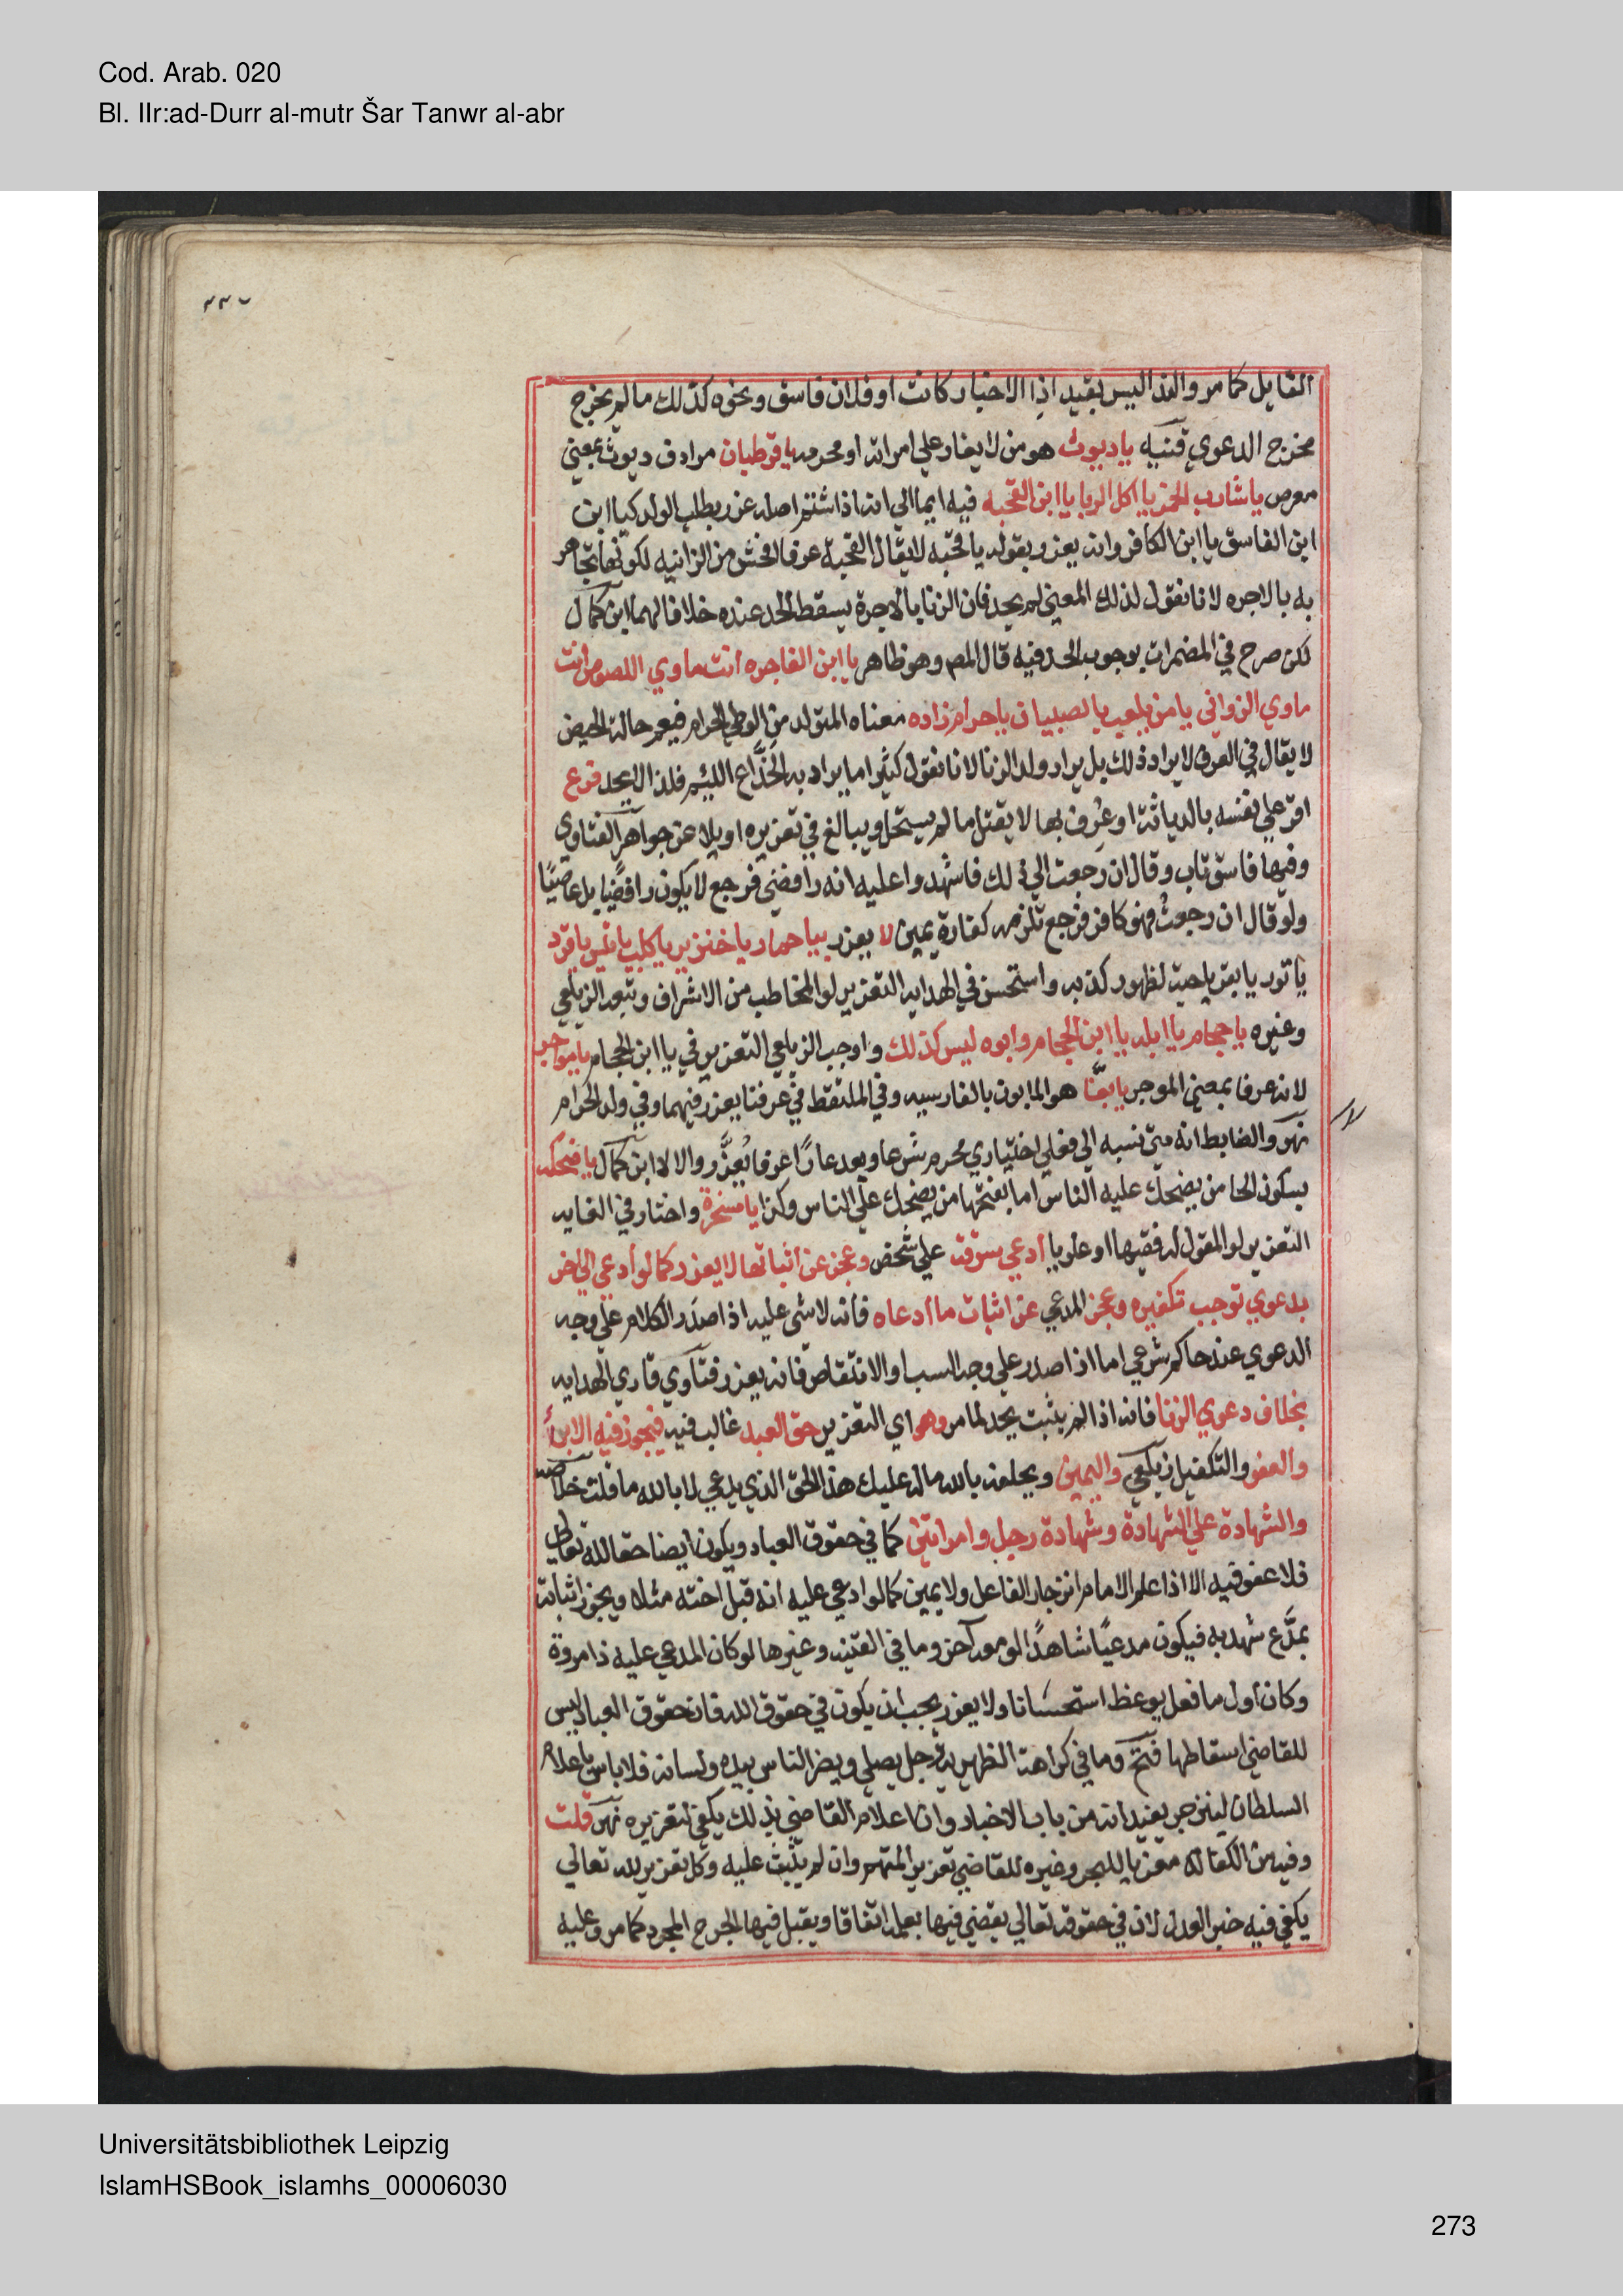 Cod. Arab. 020
Bl. IIr:ad-Durr al-mutr Šar Tanwr al-abr
القايل كما مر والندا ليس بقيد اذا الاخبار كانت او فلان فاسق ونحوه كذلك ما لم يخرج
مخرج الدعوي قنيه ياديوث هو من لا يغار علي امراته او محرمه ياقرطبان مرادف ديوث بمعني
معرص ياشارب الخمر يااكل الربا ياابن القحبه فيه ايما الي انه اذا شتم اصله عزر بطلب الولد كيا ابن
ابن الفاسق ياابن الكافر وانه يعزر بقوله ياقحبه لا يقال القحبة عرفا افحش من الزانيه لكونها تجاهر
به بالاجره لانا نقول لذلك المعني لم يحد فان الزنا بالاجرة يسقط الحد عنده خلافا لهما ابن كمال
لكن صرح في المضمرات بوجوب الحد فيه قال المص وهو ظاهر ياابن الفاجره انت ماوي اللصوص انت
ماوي الزواني يامن يلعب بالصبيان ياحرام زاده معناه المتولد من الوطي الحرام فيعم حالة الحيض
لا يقال في العرف لا يراد ذلك بل يراد ولد الزنا لانا نقول كثيرا ما يراد به الخداع اللييم فلذا لا يحد فرع
اقر علي نفسه بالدياثة او عرف بها لا يقتل ما لم يستحل ويبالغ في تعزيره او يلاعن جواهر الفتاوي
وفيها فاسق تاب وقال ان رجعت الي ذلك فاشهدوا عليه انه رافضي فرجع لا يكون رافضيا بل عاصيا
ولو قال ان رجعت فهو كافر فرجع تلزمه كفارة يمين لا يعزر بياحمار ياخنزير ياكلب ياتيس ياقرد
ياثور يابقر ياحية لظهور كذبه واستحسن في الهدايه التعزير لو المخاطب من الاشراف وتبعه الزيلعي
وغيره ياحجام ياابله ياابن الحجام وابوه ليس كذلك واوجب الزيلعي التعزير في ياابن الحجام يامواجر
لانه عرفا بمعني الموجر يابغا هو المابون بالفارسيه وفي الملتقط في عرفنا يعزر فيهما وفي ولد الحرام
نهر والضابط انه متي نسبه الي فعل اختياري محرم شرعا ويعد عارا عرفا يعزر والا لا ابن كمال ياضحكه
بسكون الحا من يضحك عليه الناس اما بفتحها من يضحك علي الناس وكذا يامسخرة واختار في الغايه
التعزير لو المقول له فقيها او علويا ادعي سرقة علي شخص وعجز عن اثباتها لا يعزر كما لو ادعي علي اخر
بدعوي توجب تكفيره وعجز المدعي عن اثبات ما ادعاه فانه لا شي عليه اذا صدر الكلام علي وجه
الدعوي عند حاكم شرعي اما اذا صدر علي وجه السب او الانتقاص فانه يعزر فتاوي قاري الهدايه
بخلاف دعوي الزنا فانه اذا لم يثبت يحد لما مر وهو اي التعزير حق العبد غالب فيه فيجوز فيه الابرا
والعفو والتكفيل زيلعي واليمين ويحلفه بالله ماله عليك هذا الحق الذي يدعي لا بالله ما قلت خلاصه
والشهادة علي الشهادة وشهادة رجل وامراتين كما في حقوق العباد ويكون ايضا حقا لله تعالي
فلا عفو فيه الا اذا علم الامام انزجار الفاعل ولا يمين كما لو ادعي عليه انه قبل اخته مثلا ويجوز اثباته
بمدع شهد به فيكون مدعيا شاهدا لو معه اخر وما في القنيه وغيرها لو كان المدعي عليه ذا مروة
وكان اول ما فعل يوعظ استحسانا ولا يعزر يجب ان يكون في حقوق الله فان حقوق العباد ليس
للقاضي اسقاطها فتح وما في كراهة الظهيرية رجل يصلي ويضر الناس بيده ولسانه فلا باس باعلام
السلطان لينزجر يفيد انه من باب الاخبار وان اعلام القاضي بذلك يكفي لتعزيره نهر قلت
وفيه من الكفالة معزيا للبحر وغيره للقاضي تعزير المتهم وان لم يثبت عليه وكل تعزير لله تعالي
يكفي فيه خبر العدل لان في حقوقه تعالي يقضي فيها بعلمه اتفاقا ويقبل فيها الجرح المجرد كما مر وعليه
Universitätsbibliothek Leipzig
IslamHSBook_islamhs_00006030
273